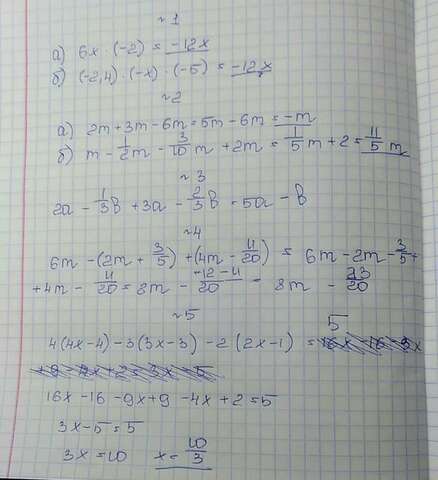 ~ 1
а) 6x · (-2) = -12x
б) (-2,4) · (-x) · (-5) = -12x
~2
а) 2m + 3m - 6m = 5m - 6m = -m
б) m - 1/2 m - 3/10 m + 2m = 1/5 m + 2 = 11/5 m
~ 3
2a - 1/3 b + 3a - 2/3 b = 5a - b
~4
6m - (2m + 3/5) + (4m - 11/20) = 6m - 2m - 3/5 +
+ 4m - 11/20 = 8m - -12-11/20 = 8m - 23/20
~5
4(4x-4) - 3(3x-3) - 2(2x-1) = 5
16x - 16 - 9x + 9 - 4x + 2 = 5
3x - 5 = 5
3x = 10 x = 10/3